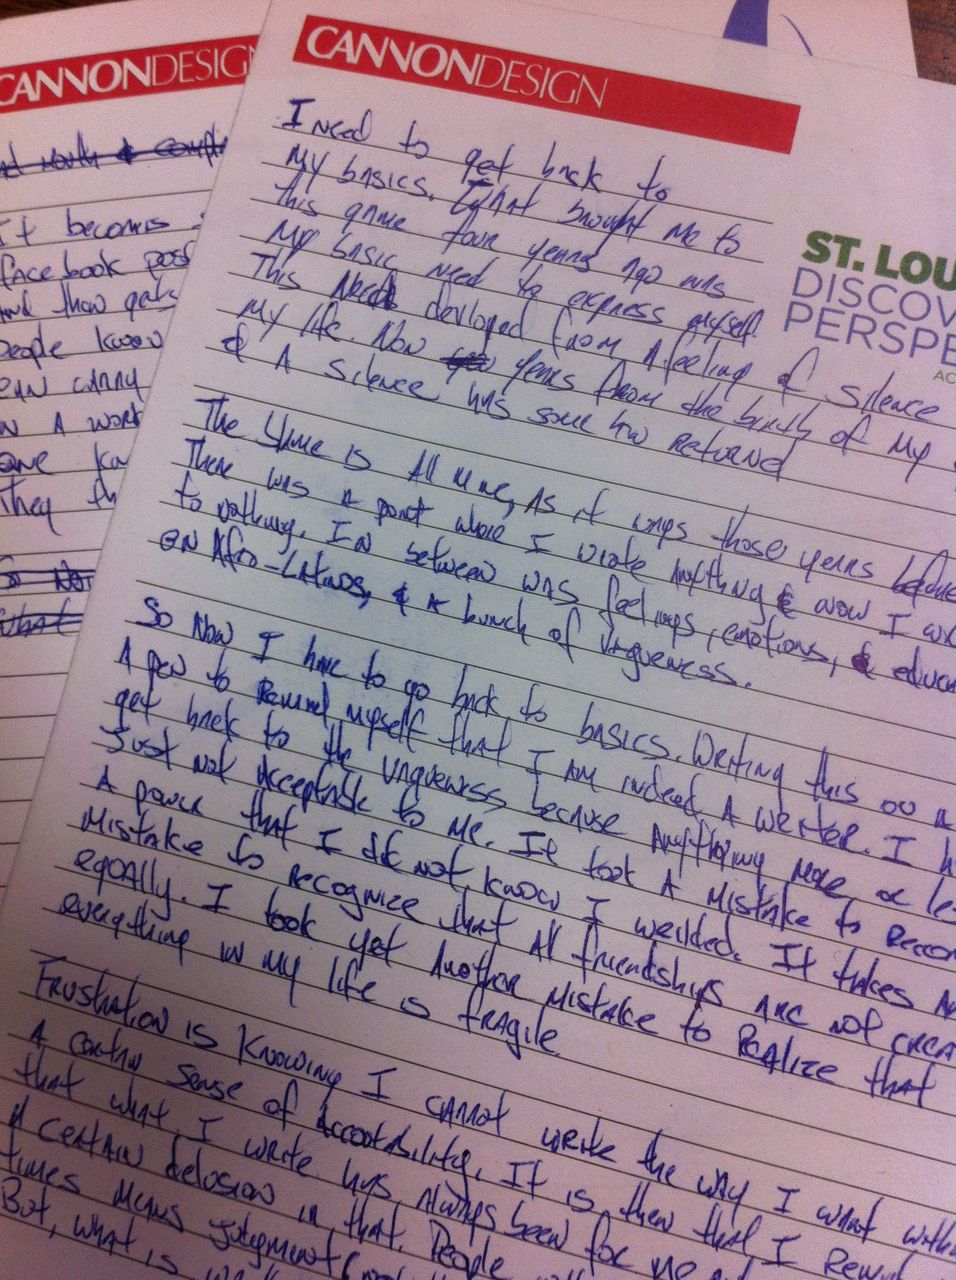 CANNONDESIGN
I Need to get back to
My basics. What brought Me to
this game four years ago was
My basic need to express myself.
This Need devloped from A feeling of silence
My life. Now years from the birth of My
& A silence has some how returned
The blame is All Mine, As it wraps those years before
There was a point where I wrote Anything & now I
to Nothing. In between was feelings, emotions, &
on Afro-Latinos, & a bunch of Vagueness.
So Now I have to go back to basics. Writing this on
A pen to Remind myself that I AM indeed A Writer. I
get back to the Vagueness, because Anything More or
Just Not Acceptable to Me. It took A Mistake to
A power that I did not know I weilded. It takes
Mistake to Recognize that All friendships ARE NOT
eqaully. I took yet Another Mistake to Realize that
everything in my life is fRAgile.
FRustration is Knowing I CANNOT WRite the WAy I WANT
A certain sense of Accountability. It is then that I
that what I write has Always been for me
A CERTAIN delusion in that. People
times Means Judgment
But, what is
ST. LOU
DISCOV
PERSPE
AC
CANNONDESIG
It becomes
facebook post
And thow gets
people know
CAN CARRY
IN A WORK
They th